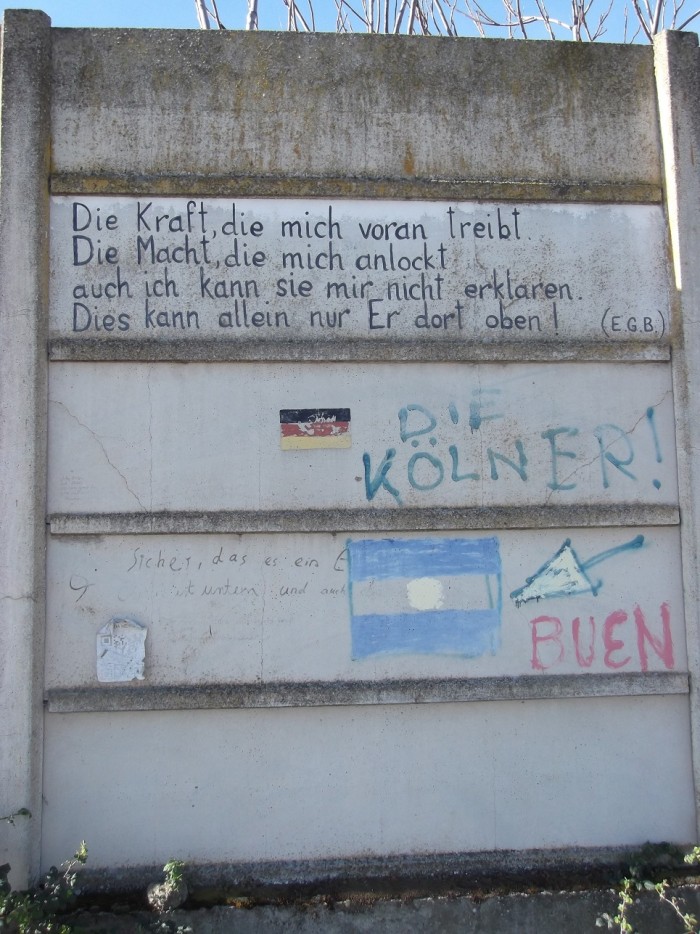 Die Kraft, die mich voran treibt.
Die Macht, die mich anlockt
auch ich kann sie mir nicht erklären.
Dies kann allein nur Er dort oben! (E.G.B.)
DIE
KÖLNER!
Sicher, das es ein E
unten und auch
BUEN